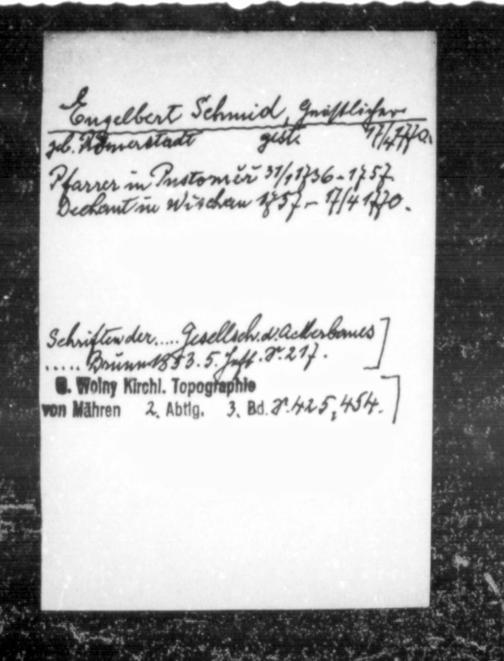 Engelbert Schmid, Geistlicher
geb. Römerstadt gest. 17/4 1770.
Pfarrer in Pustoměř 31/1 1736 - 1757
Dechant in Wischau 1757 - 17/4 1770.
Schriften der ..... Gesellsch. d. Ackerbaues ]
..... Brünn 1853. 5. Heft. S. 217.
G. Wolny Kirchl. Topographie ]
von Mähren 2. Abtlg. 3. Bd. S. 425, 454.